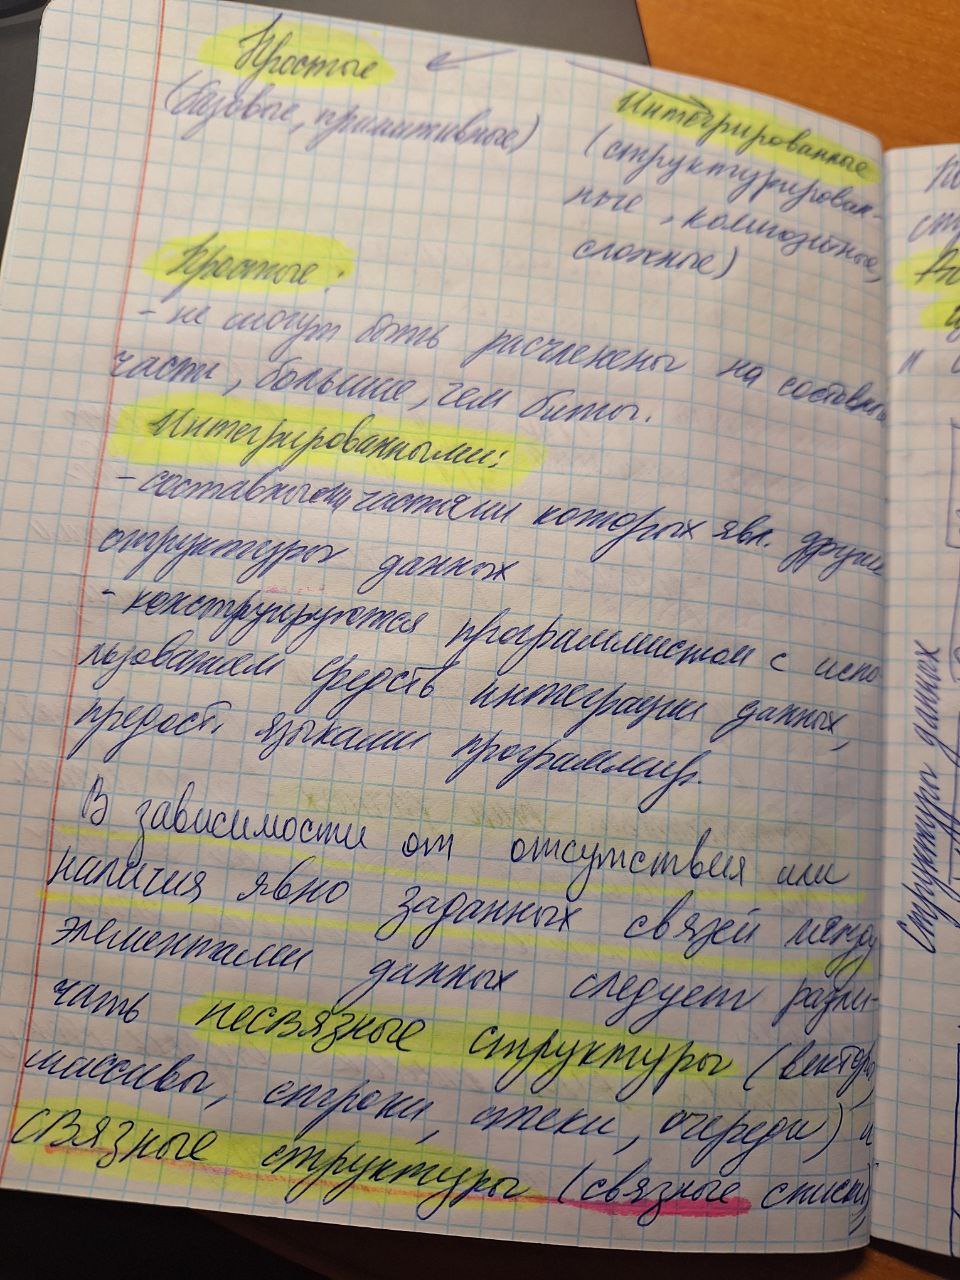 Простые
Интегрированные
(базовые, примитивные)
(структурирован-
ные, композитные,
сложные)
Простые:
- не могут быть расчленены на составные
части, большие, чем биты.
Интегрированными:
- составными частями которых явл. другие
структуры данных
- конструируются программистом с испо-
льзованием средств интеграции данных,
предост. языками программир.
В зависимости от отсутствия или
наличия явно заданных связей между
элементами данных следует разли-
чать несвязные структуры (векторы,
массивы, строки, стеки, очереди) и
связные структуры (связные списки)
Структуры данных